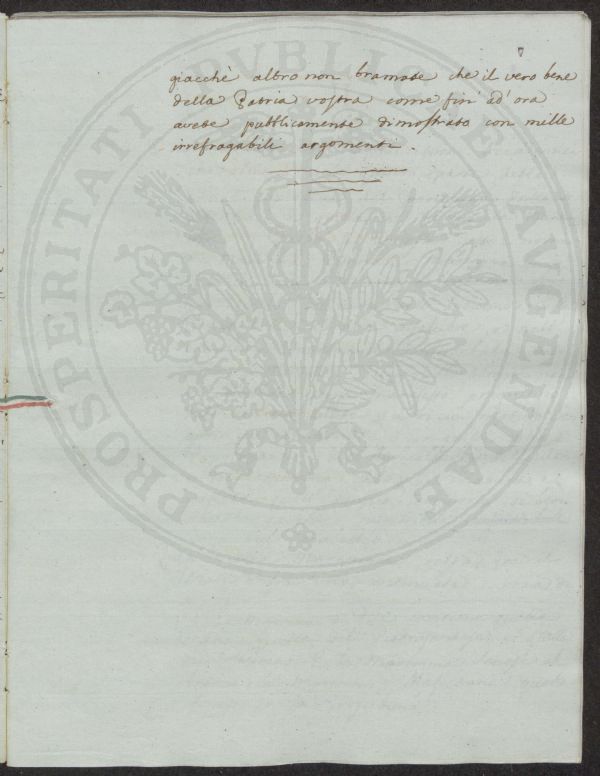 giacchè altro non bramate che il vero bene
della Patria vostra come fin' ad' ora
avete pubblicamente dimostrato con mille
irrefragabili argomenti.
PROSPERITATI PVBLICAE AVGENDAE